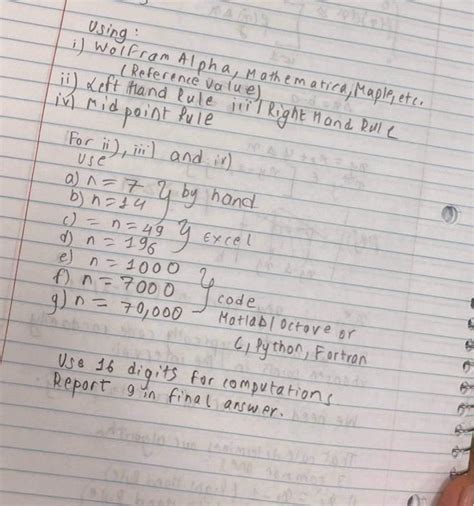 Using:
i) Wolfram Alpha, Mathematica, Maple, etc.
(Reference value)
ii) Left Hand Rule iii) Right Hand Rule
iv) Midpoint Rule
For ii), iii) and iv)
use
a) n = 7 } by hand
b) n = 14
c) = n = 49 } Excel
d) n = 196
e) n = 1000 }
f) n = 7000 code
g) n = 70,000 Matlab/Octave or
C, Python, Fortran
Use 16 digits for computations
Report 9 in final answer.